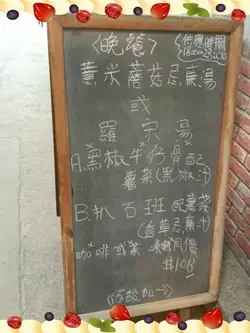 <晚餐>
(供應時間
18:00-23:00)
薏米蘑菇忌廉湯
或
羅宋湯
A.黑椒牛仔骨配
薯菜(黑椒汁)
B.扒石班配薯菜
(白草忌廉汁)
咖啡或茶 凍飲同價
$108
(另設加一)